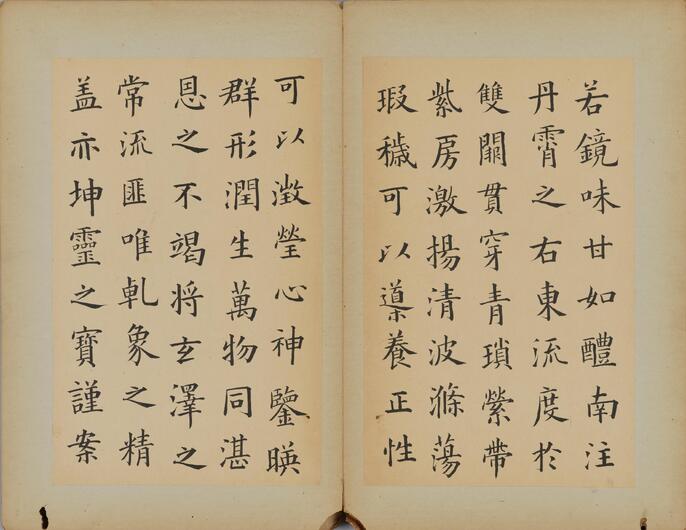 若鏡味甘如醴南注
丹霄之右東流度於
雙闕貫穿青瑣縈帶
紫房激揚清波滌蕩
瑕穢可以導養正性
可以澂瑩心神鑒暎
群形潤生萬物同湛
恩之不竭将玄澤之
常流匪唯乹象之精
盖亦坤靈之寶謹案